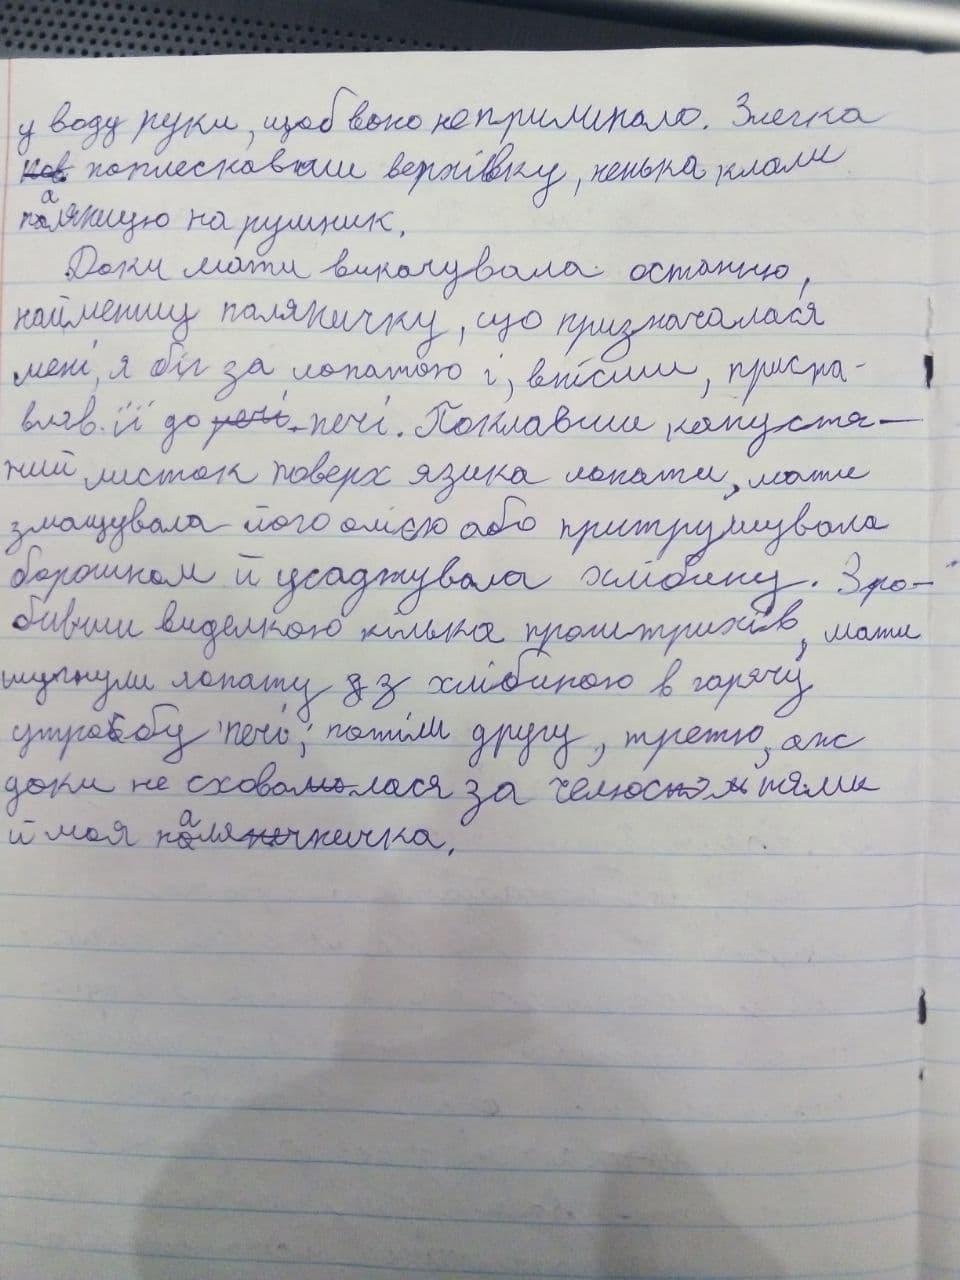 у воду руки, щоб воно не прилипало. Злегка
поплескавши верхівку, ненька клали
паляницю на рушник.
Доки мати викачувала останню,
найменшу паляничку, що призначалася
мені, я біг за лопатою і, втісши, приспра-
вляв її до печі. Поклавши капустя-
ний листок поверх язика лопати, мати
змащувала його олією або притрушувала
борошном й усаджувала хлібину. Зро-
бивши виделкою кілька проштрихів, мати
шугнули лопату з хлібиною в гарячу
утробу печі, потім другу, третю, аж
доки не сховалася за челюстями
й моя паляничка.